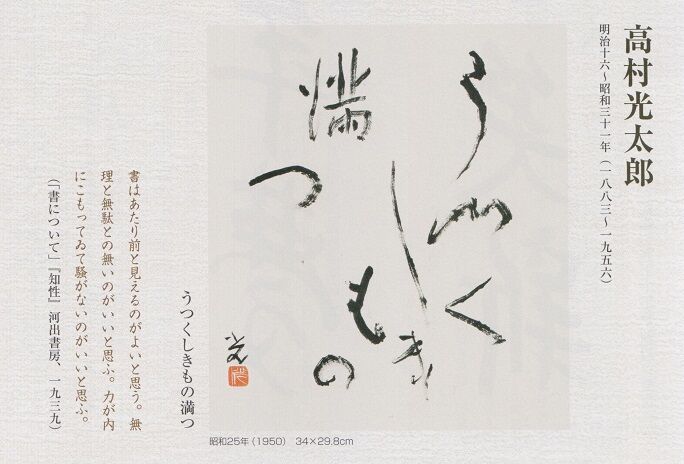 高村光太郎
明治十六～昭和三十一年（一八八三～一九五六）
うつくしき
もの
満つ
光
うつくしきもの満つ
書はあたり前と見えるのがよいと思う。無
理と無駄との無いのがいいと思ふ。力が内
にこもってゐて騒がないのがいいと思ふ。
（「書について」『知性』河出書房、一九三九）
昭和25年（1950） 34×29.8cm